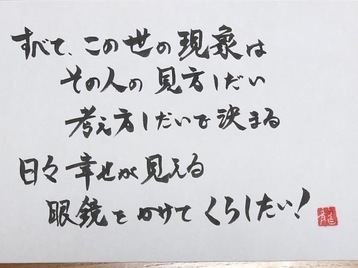 すべて、この世の現象は
その人の見方しだい
考え方しだいで決まる
日々幸せが見える
眼鏡をかけてくらしたい!